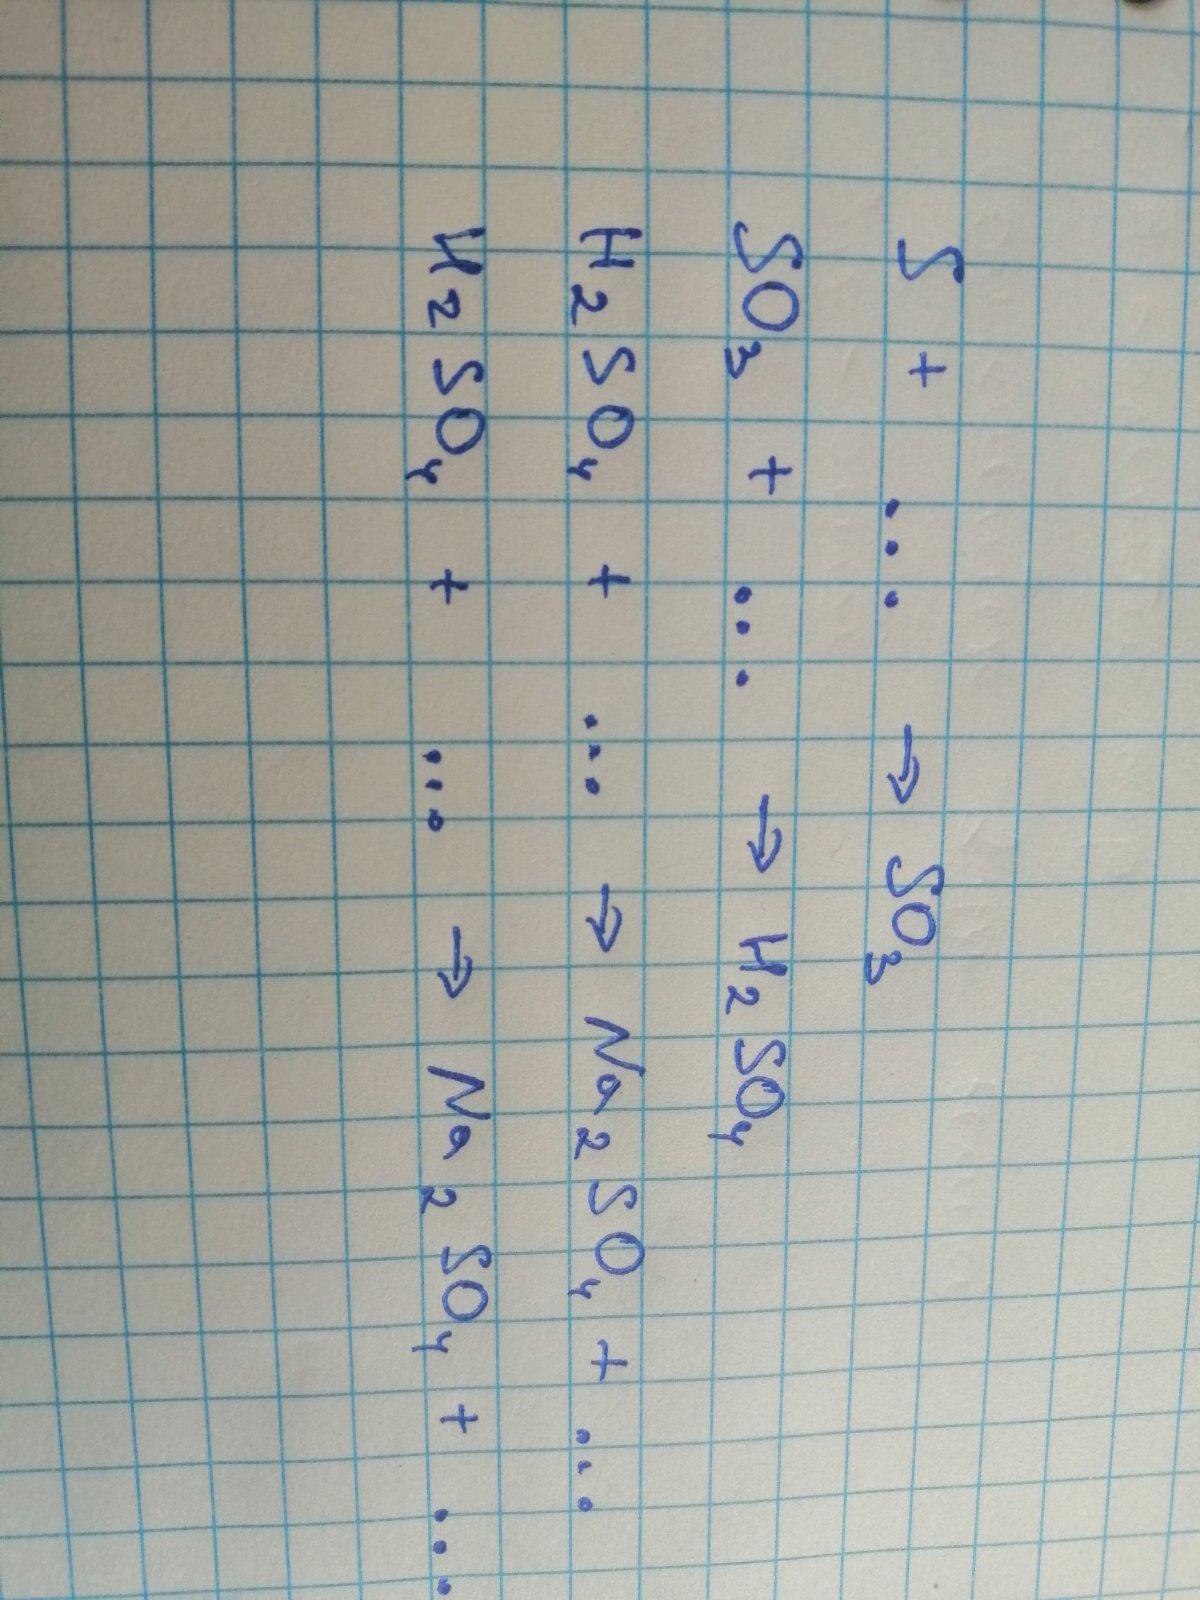 S + ... → SO₃
SO₃ + ... → H₂SO₄
H₂SO₄ + ... → Na₂SO₄ + ...
H₂SO₄ + ... → Na₂SO₄ + ...